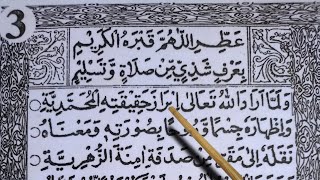 3
عَطِّرِ اللّٰهُمَّ قَبْرَهُ الْكَرِيْمَ
بِعَرْفٍ شَذِيٍّ مِنْ صَلَاةٍ وَتَسْلِيْمٍ
وَلَمَّا اَرَادَ اللّٰهُ تَعَالٰى اِبْرَازَ حَقِيْقَتِهِ الْمُحَمَّدِيَّةِ
وَاِظْهَارَهُ جِسْمًا وَرُوْحًا بِصُوْرَتِهِ وَمَعْنَاهُ
نَقَلَهُ اِلٰى مَقَرِّهِ مِنْ صَدَفَةِ اٰمِنَةَ الزُّهْرِيَّةِ